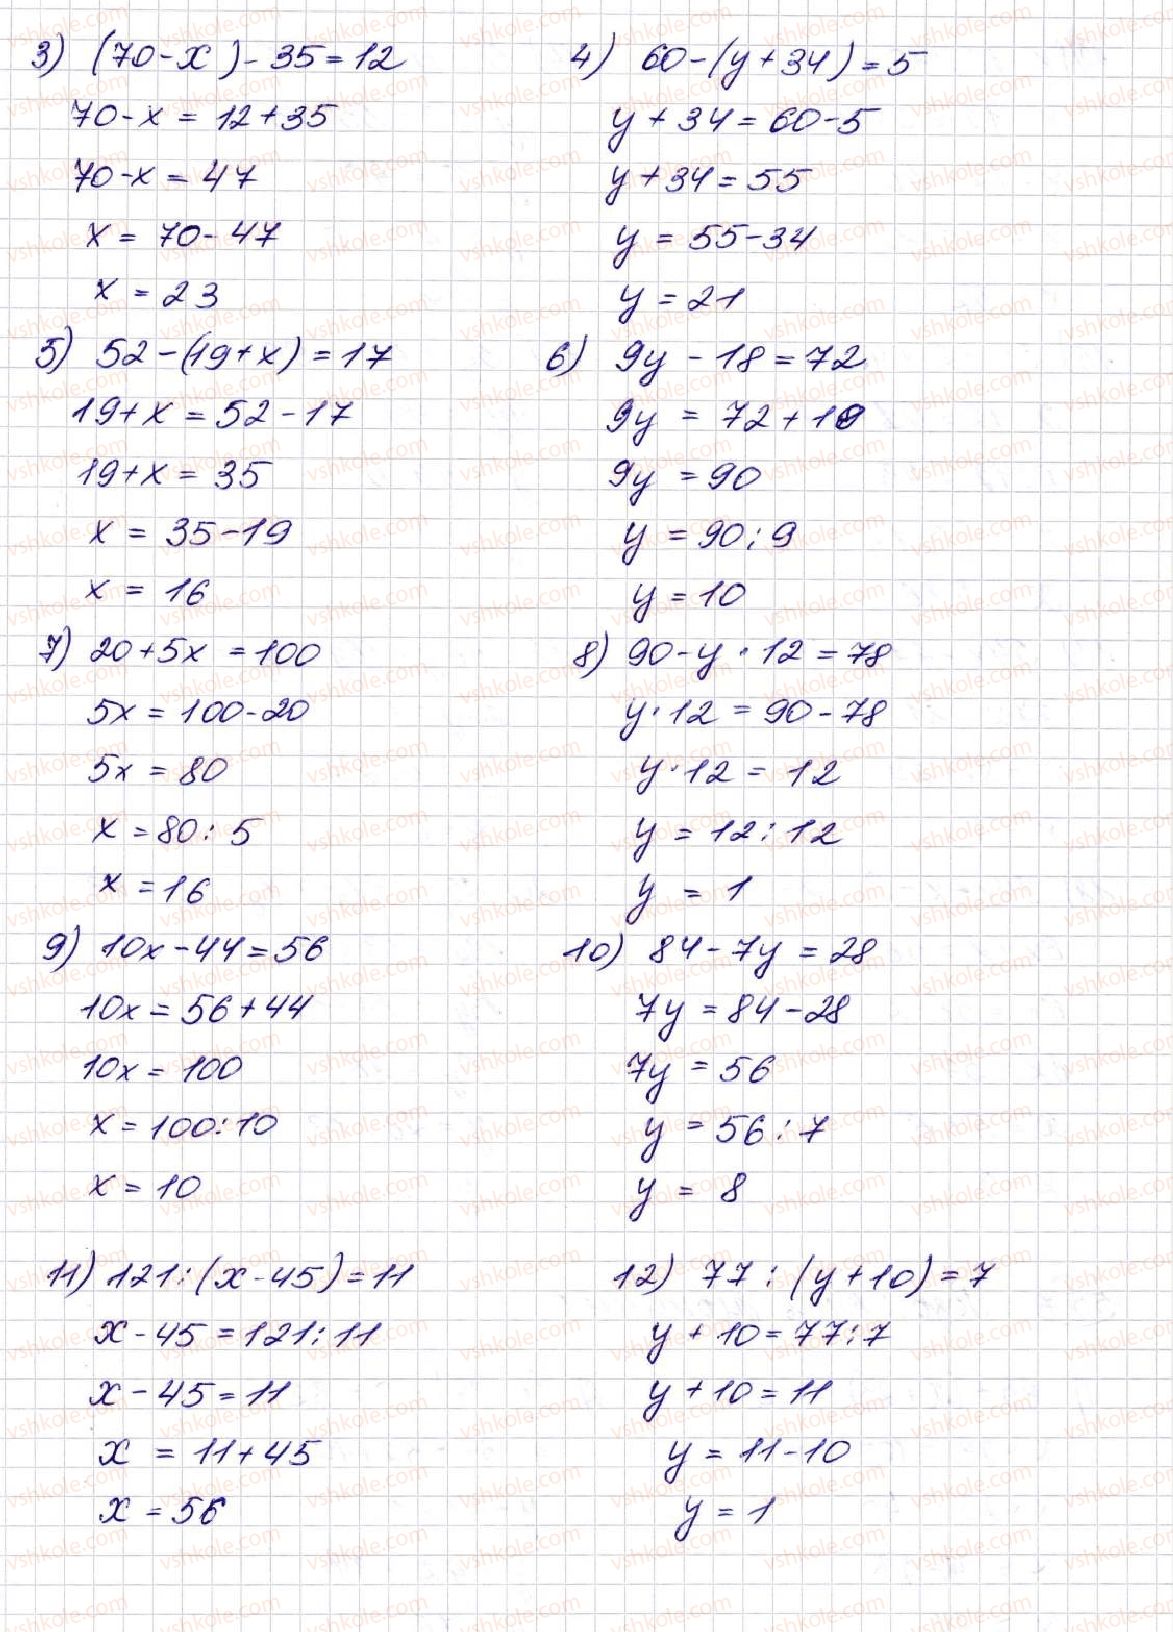 3) (70-x)-35=12
70-x = 12+35
70-x = 47
x = 70-47
x = 23
4) 60-(y+34)=5
y+34=60-5
y+34=55
y = 55-34
y = 21
5) 52-(19+x)=17
19+x = 52-17
19+x = 35
x = 35-19
x = 16
6) 9y - 18 = 72
9y = 72+18
9y = 90
y = 90:9
y = 10
7) 20+5x = 100
5x = 100-20
5x = 80
x = 80:5
x = 16
8) 90-y·12=78
y·12 = 90-78
y·12 = 12
y = 12:12
y = 1
9) 10x-44=56
10x = 56+44
10x = 100
x = 100:10
x = 10
10) 84-7y = 28
7y = 84-28
7y = 56
y = 56:7
y = 8
11) 121:(x-45)=11
x-45=121:11
x-45=11
x = 11+45
x = 56
12) 77:(y+10)=7
y+10=77:7
y+10=11
y = 11-10
y = 1
vshkole.com